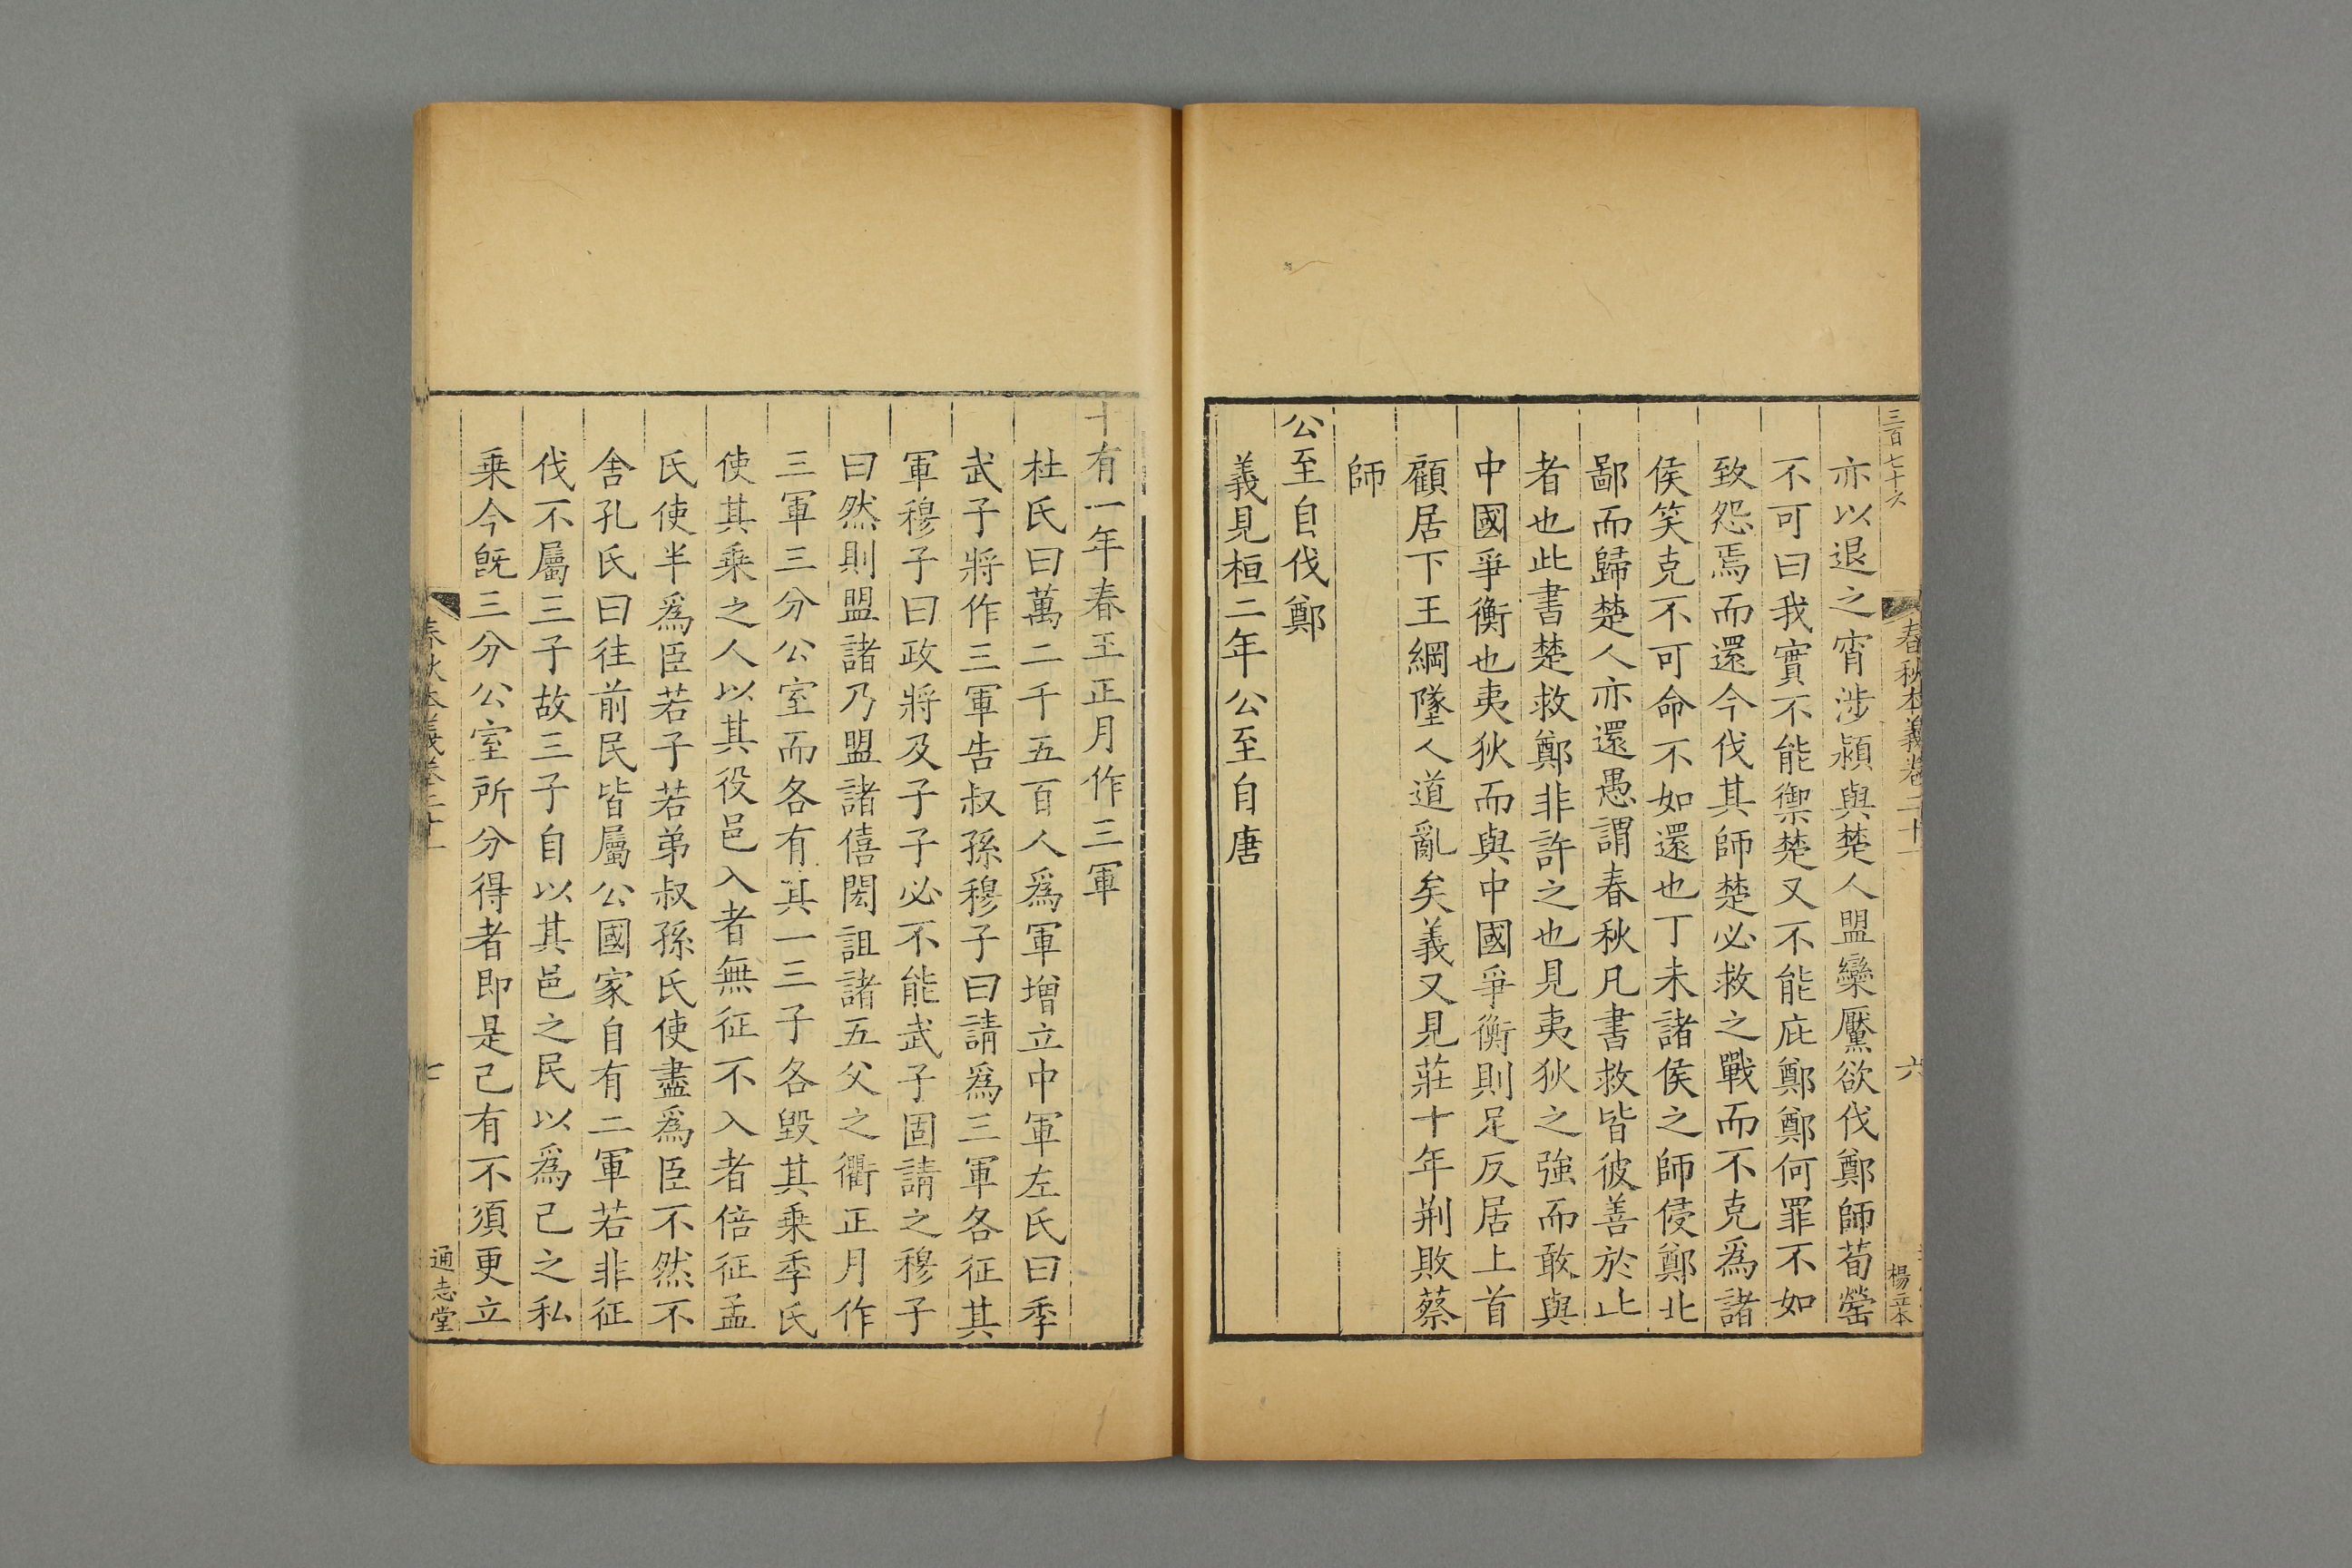 三百七十六
春秋本義卷二十一
六
楊立本
亦以退之宵涉潁與楚人盟欒黶欲伐鄭師荀罃
不可曰我實不能禦楚又不能庇鄭鄭何罪不如
致怨焉而還今伐其師楚必救之戰而不克爲諸
侯笑克不可命不如還也丁未諸侯之師侵鄭北
鄙而歸楚人亦還愚謂春秋凡書救皆彼善於此
者也此書楚救鄭非許之也見夷狄之強而敢與
中國爭衡也夷狄而與中國爭衡則足反居上首
顧居下王綱墜人道亂矣義又見莊十年荆敗蔡
師
公至自伐鄭
義見桓二年公至自唐
十有一年春王正月作三軍
杜氏曰萬二千五百人爲軍增立中軍左氏曰季
武子將作三軍告叔孫穆子曰請爲三軍各征其
軍穆子曰政將及子子必不能武子固請之穆子
曰然則盟諸乃盟諸僖閎詛諸五父之衢正月作
三軍三分公室而各有其一三子各毀其乘季氏
使其乘之人以其役邑入者無征不入者倍征孟
氏使半爲臣若子若弟叔孫氏使盡爲臣不然不
舍孔氏曰往前民皆屬公國家自有二軍若非征
伐不屬三子故三子自以其邑之民以爲己之私
乘今旣三分公室所分得者即是己有不須更立
春秋本義卷二十一
七
通志堂